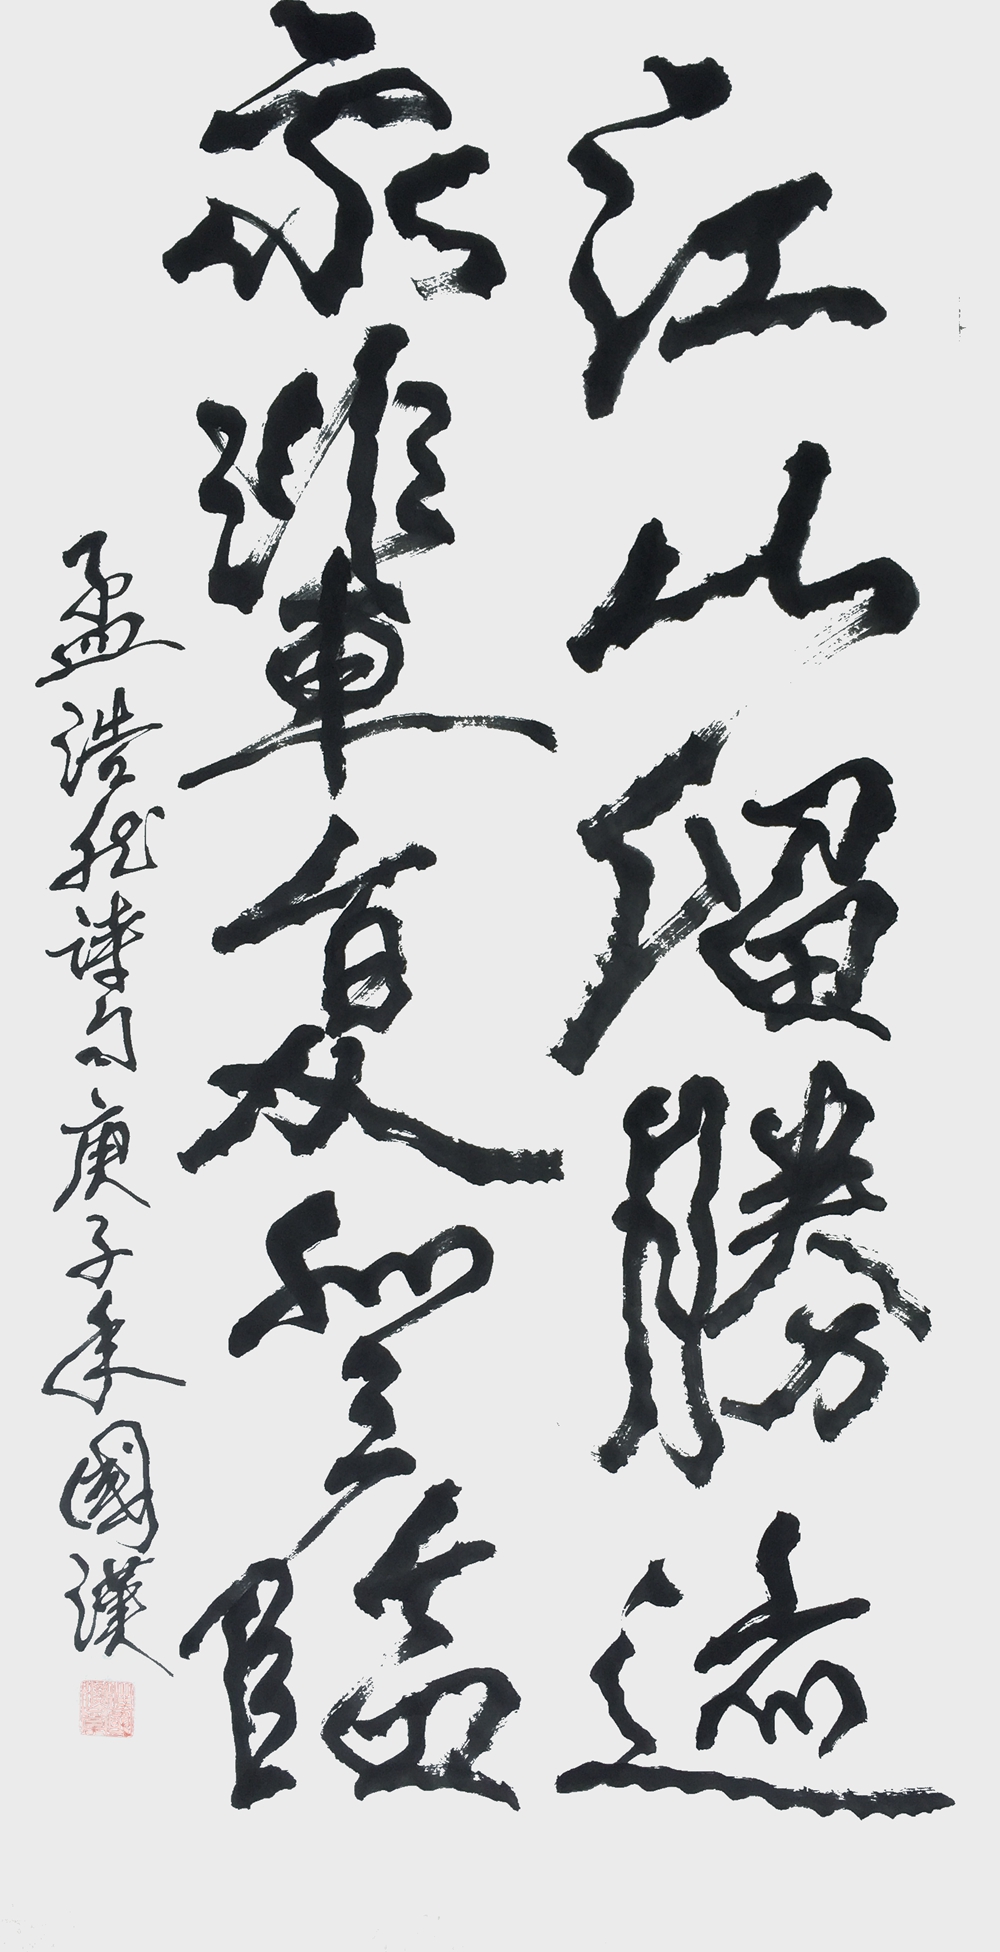 江山留勝迹
永輩复登臨
孟浩然詩句庚子年國漢